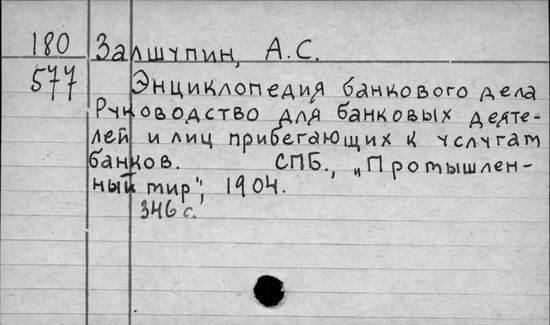 180 Залшупин, А.С.
577 Энциклопедия банкового дела
Руководство для банковых деяте-
лей и лиц прибегающих к услугам
банков. СПБ., „Промышлен-
ный мир", 1904.
346 с.